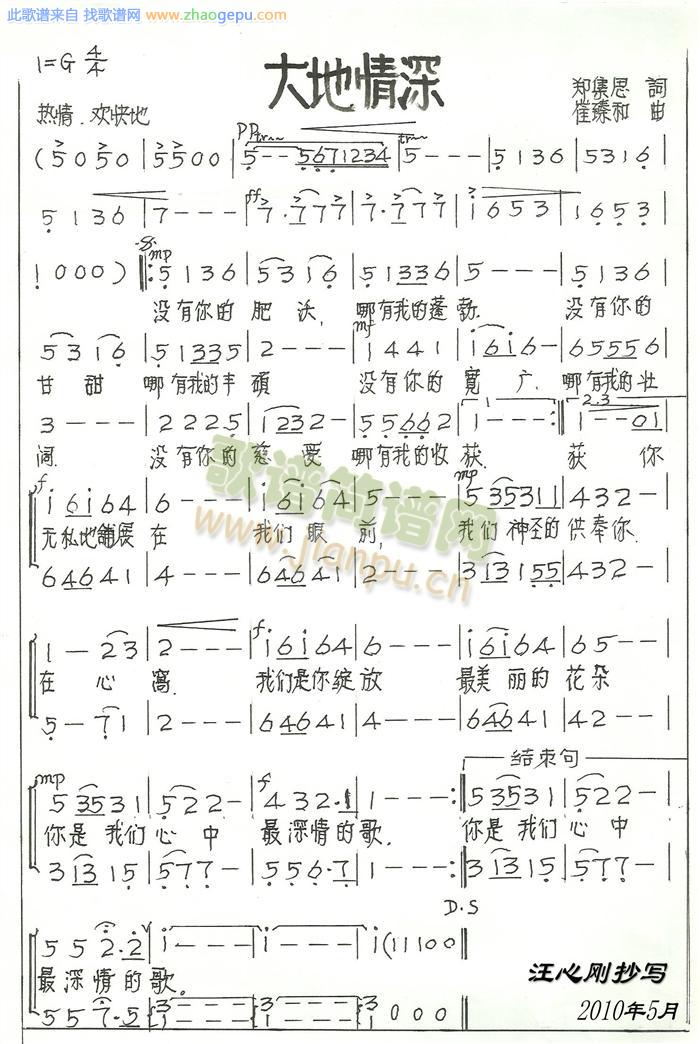 此歌谱来自 找歌谱网 www.zhaogepu.com
1=G 4/4
大地情深
郑集思 詞
崔臻和 曲
热情.欢快地
(5050|5500|5--5671234|5---|5136|5316|
5136|7---|7·777|7·777|i653|1653|
1000)|:5136|5316|51336|5---|5136|
没有你的 肥 沃, 哪有我的蓬勃. 没有你的
5316|51335|2---|1441|i6i6-|655556|
甘 甜 哪有我的丰 碩 没有你的 寬 广, 哪有我的壮
3---|2225|1232-|55662|1---:|1--01|
阔. 没有你的 慈 爱 哪有我的收 获. 获 你
i6i64|6---|i6i64|5---|535311|432-|
无私地鋪展 在 我们 眼 前, 我们 神圣的 供奉你
64641|4---|64641|2---|313155|432-|
1-23|2---|i6i64|6---|i6i64|65--|
在 心 窩. 我们是你 绽放 最美 丽的 花朵
5-71|2---|64641|4---|64641|42--|
结束句
53531|522-|432·1|1---:|53531|522-|
你是 我们 心 中 最深情的歌. 你是 我们 心 中
31315|577-|556·7|1---:|31315|577-|
D.S
552·2|i---|i---|i(11100‖
最深 情 的 歌。
557·5|
汪心刚抄写
2010年5月
歌谱简谱网
www.jianpu.cn